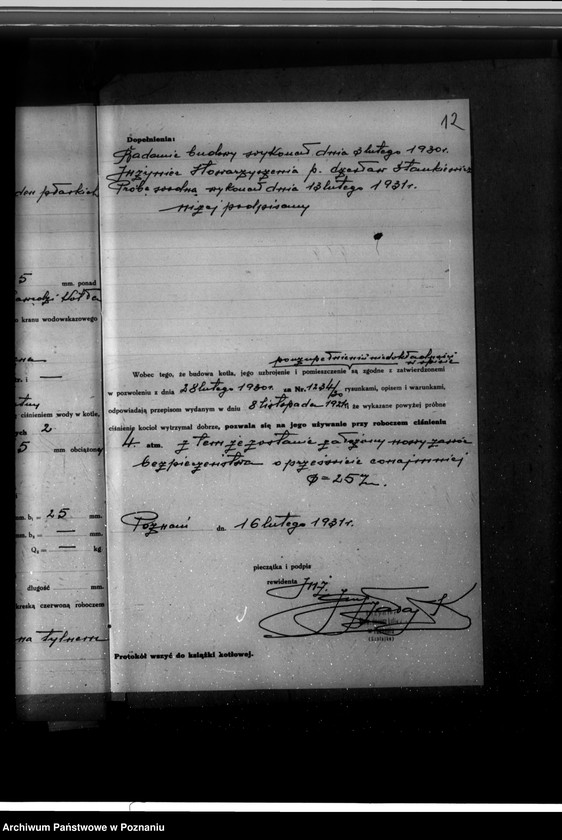 12
Dopełnienia:
Badanie budowy wykonał dnia 3 lutego 1930r.
Inżynier Stowarzyszenia p. Czesław Stankiewicz
Próbę wodną wykonał dnia 13 lutego 1931r.
niżej podpisany
Wobec tego, że budowa kotła, jego uzbrojenie i pomieszczenie są zgodne z zatwierdzonemi
po uzupełnieniu niedokładności
w pozwoleniu z dnia 28 lutego 1930r. za Nr. 1234/30 rysunkami, opisem i warunkami,
odpowiadają przepisom wydanym w dniu 8 listopada 1921r. że wykazane powyżej próbne
ciśnienie kocioł wytrzymał dobrze, pozwala się na jego używanie przy roboczem ciśnieniu
4. atm. z tem że zostanie założony nowy zawór
bezpieczeństwa o prześwicie conajmniej
φ = 25 m/m.
Poznań dn. 16 lutego 1931r.
pieczątka i podpis
rewidenta Inż.
Protokół wszyć do książki kotłowej.
5 mm. ponad
o kranu wodowskazowego
tr. i —
ciśnieniem wody w kotle,
ych 2
5 mm obciążony
mm. b₁ = 25 mm.
mm. b₂ = — mm.
Q₂ = — kg.
długość mm.
kreską czerwoną roboczem
na tylnem
Archiwum Państwowe w Poznaniu